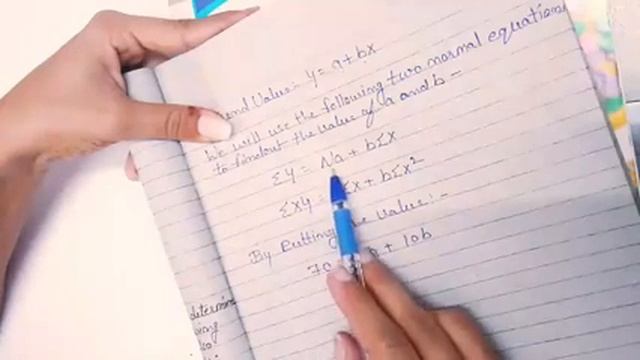 end Value:- y = a + bx
We will use the following two normal equations
to findout the value of a and b -
Σy = Na + bΣx
Σxy = Σx + bΣx²
By Putting Value:-
70 + 10b
determine